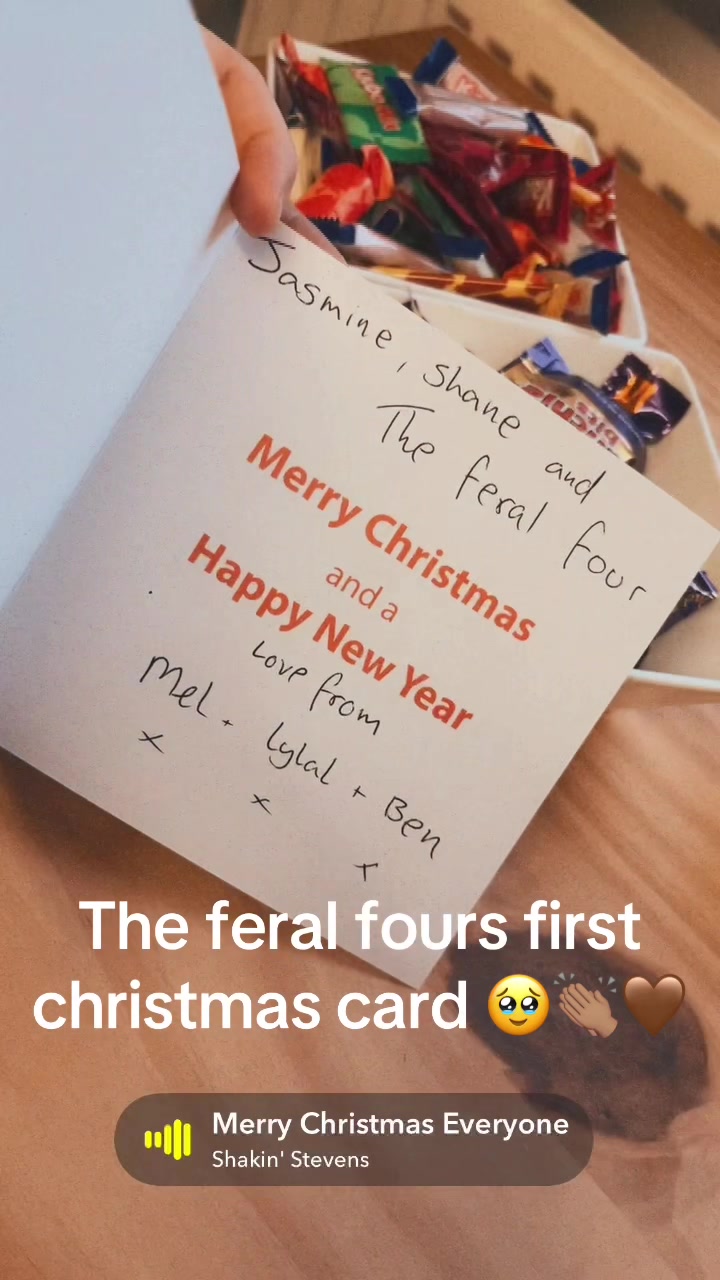 Jasmine, Shane and
The feral four
Merry Christmas
and a
Happy New Year
Love from
Mel + Lylal + Ben
x x x
The feral fours first
christmas card 🥹👏🏽🤎
Merry Christmas Everyone
Shakin' Stevens